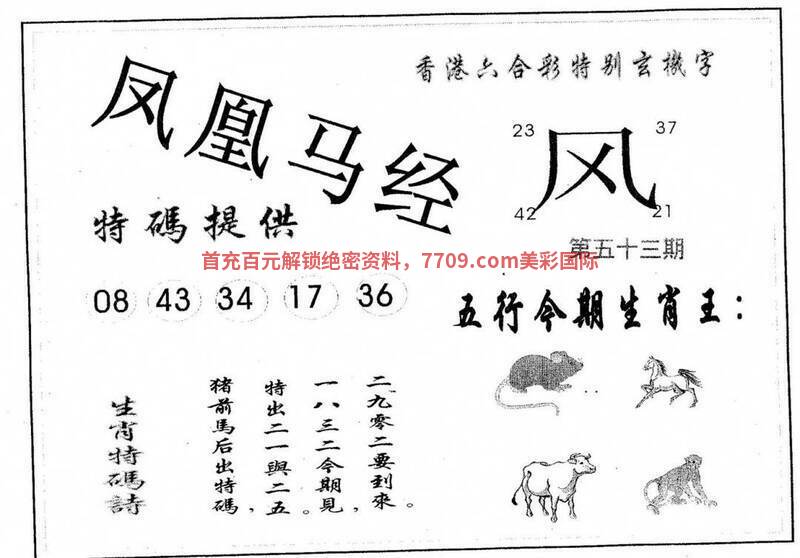 香港六合彩特别玄機字
凤凰马经
23
37
风
42
21
特碼提供
第五十三期
首充百元解锁绝密资料，7709.com美彩国际
08 43 34 17 36
五行今期生肖王：
生肖特碼詩
二九零二要到來。
一八三二今期見，
特出二一與二五。
猪前馬后出特碼，